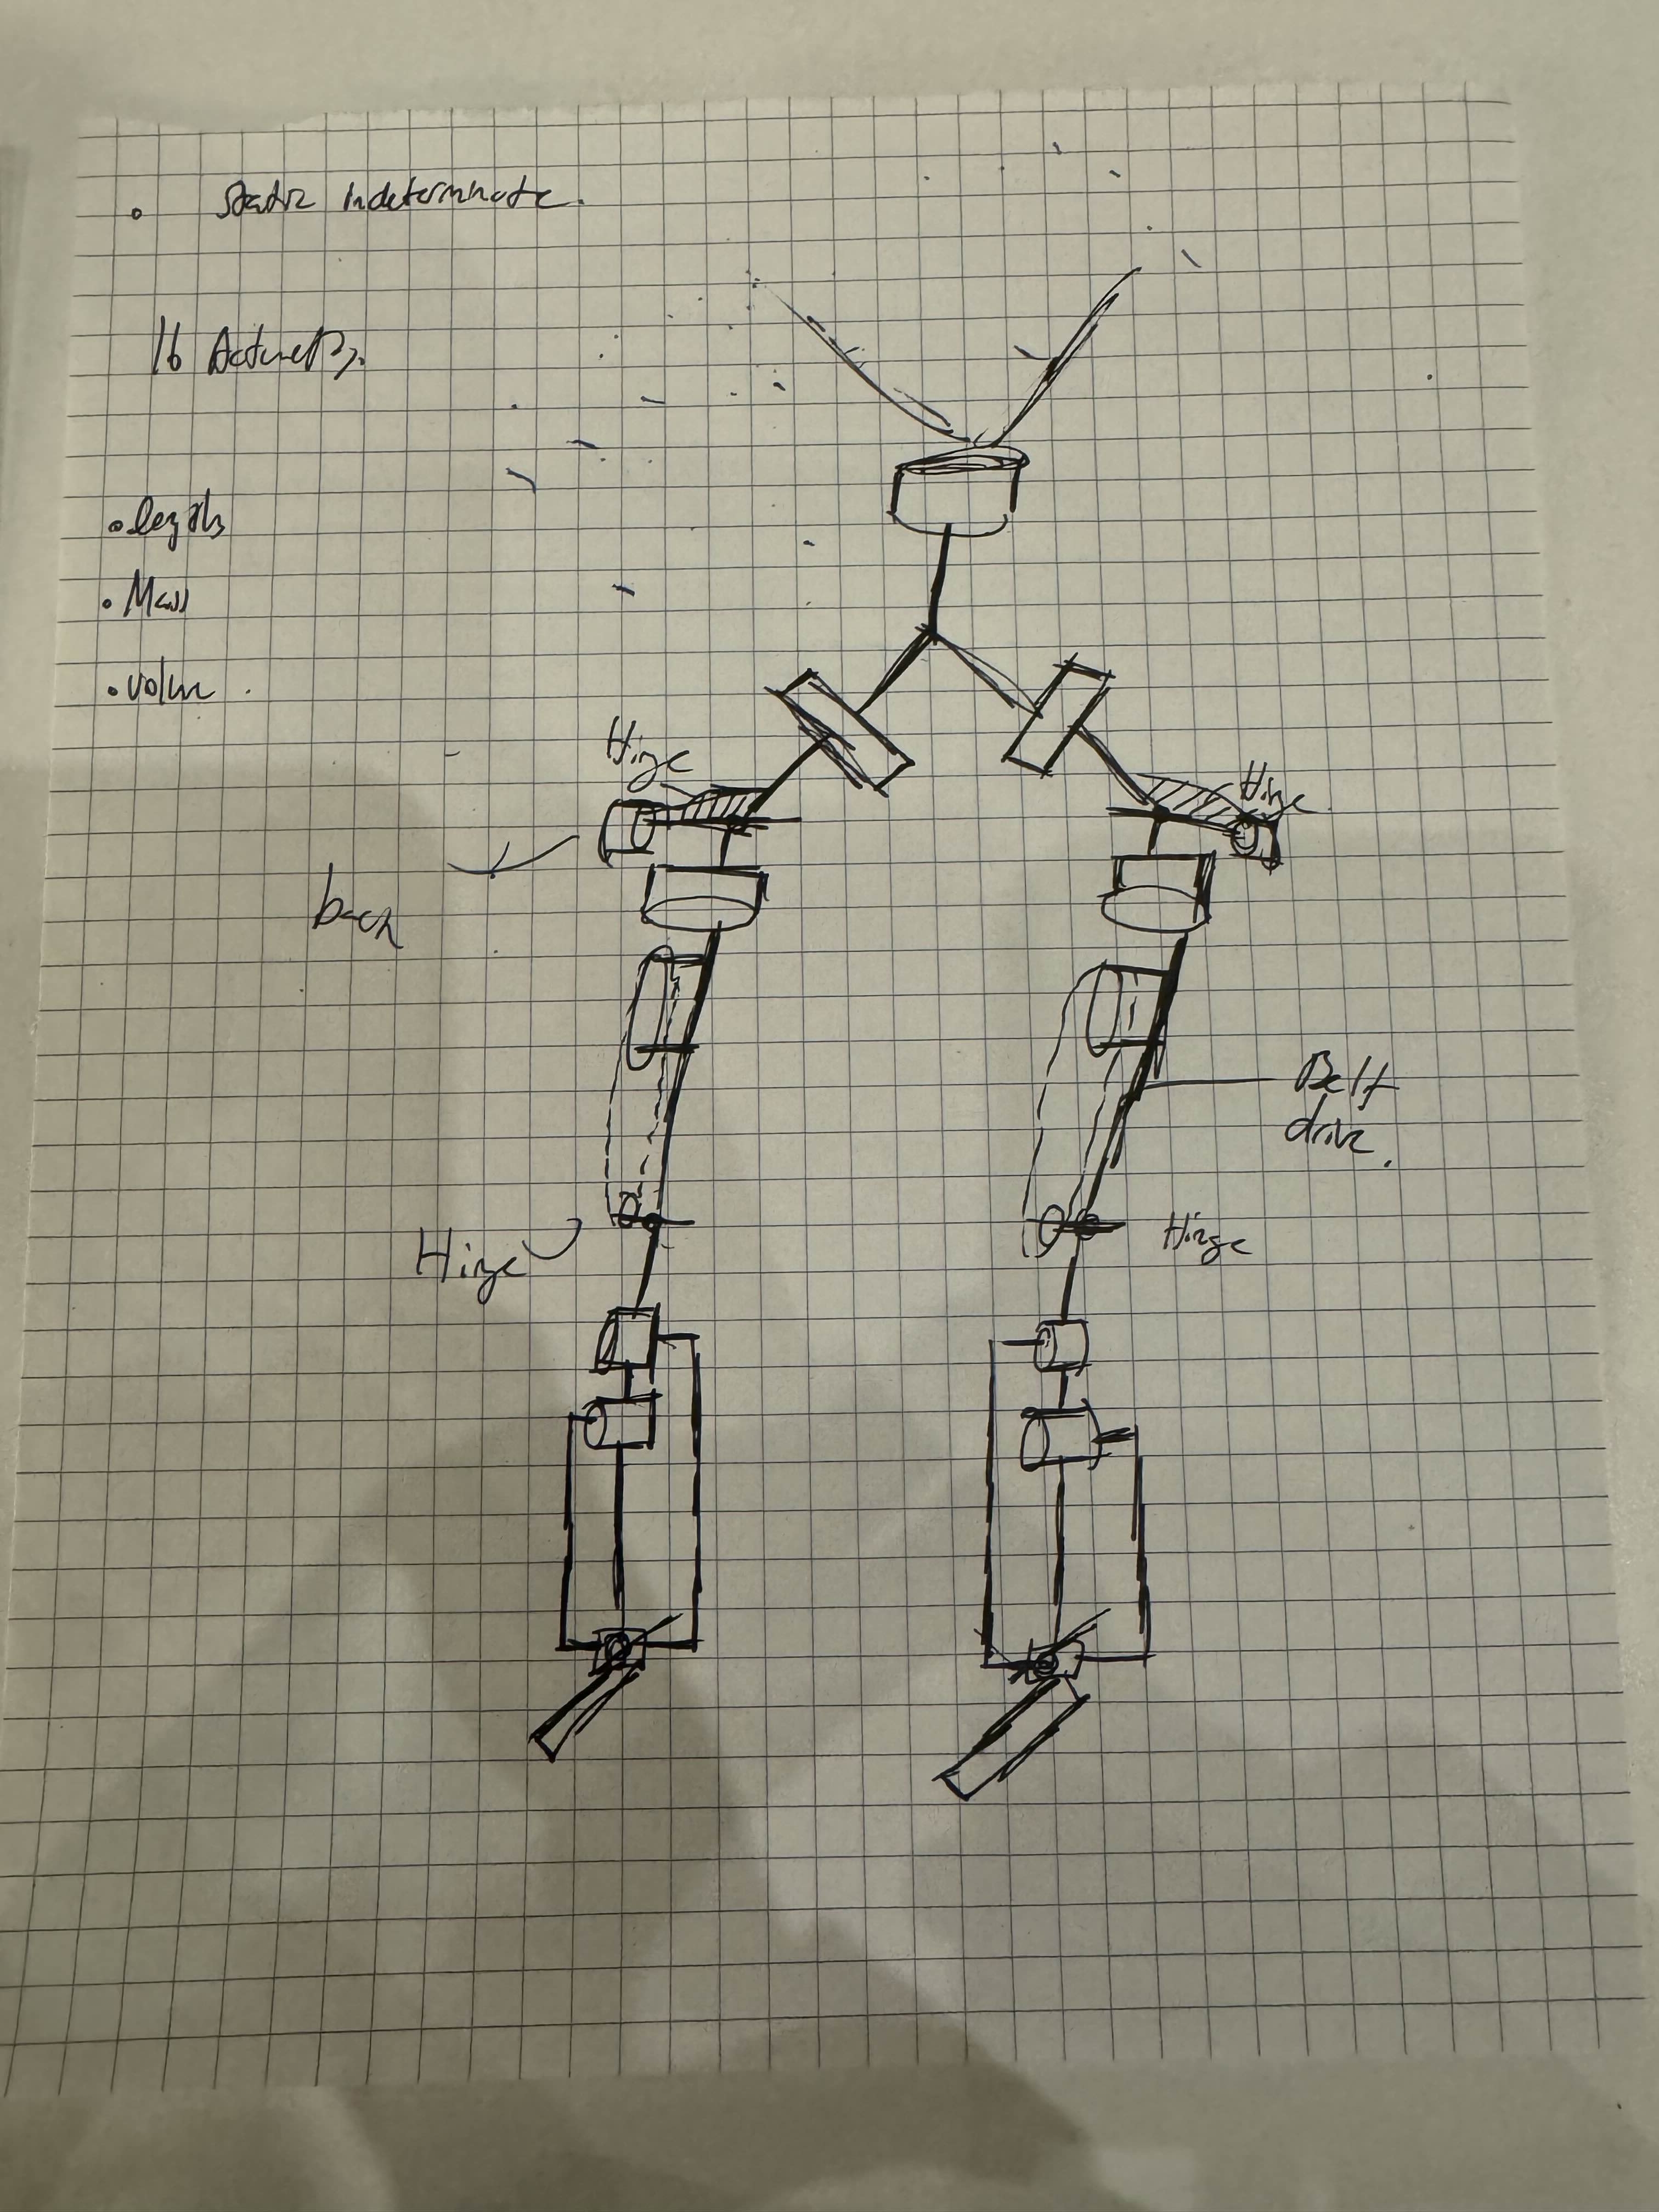 • Static indeterminate.
16
• lengths
• Mass
• Volum.
Hinge
Hinge
back
Belt
drive.
Hinge
Hinge